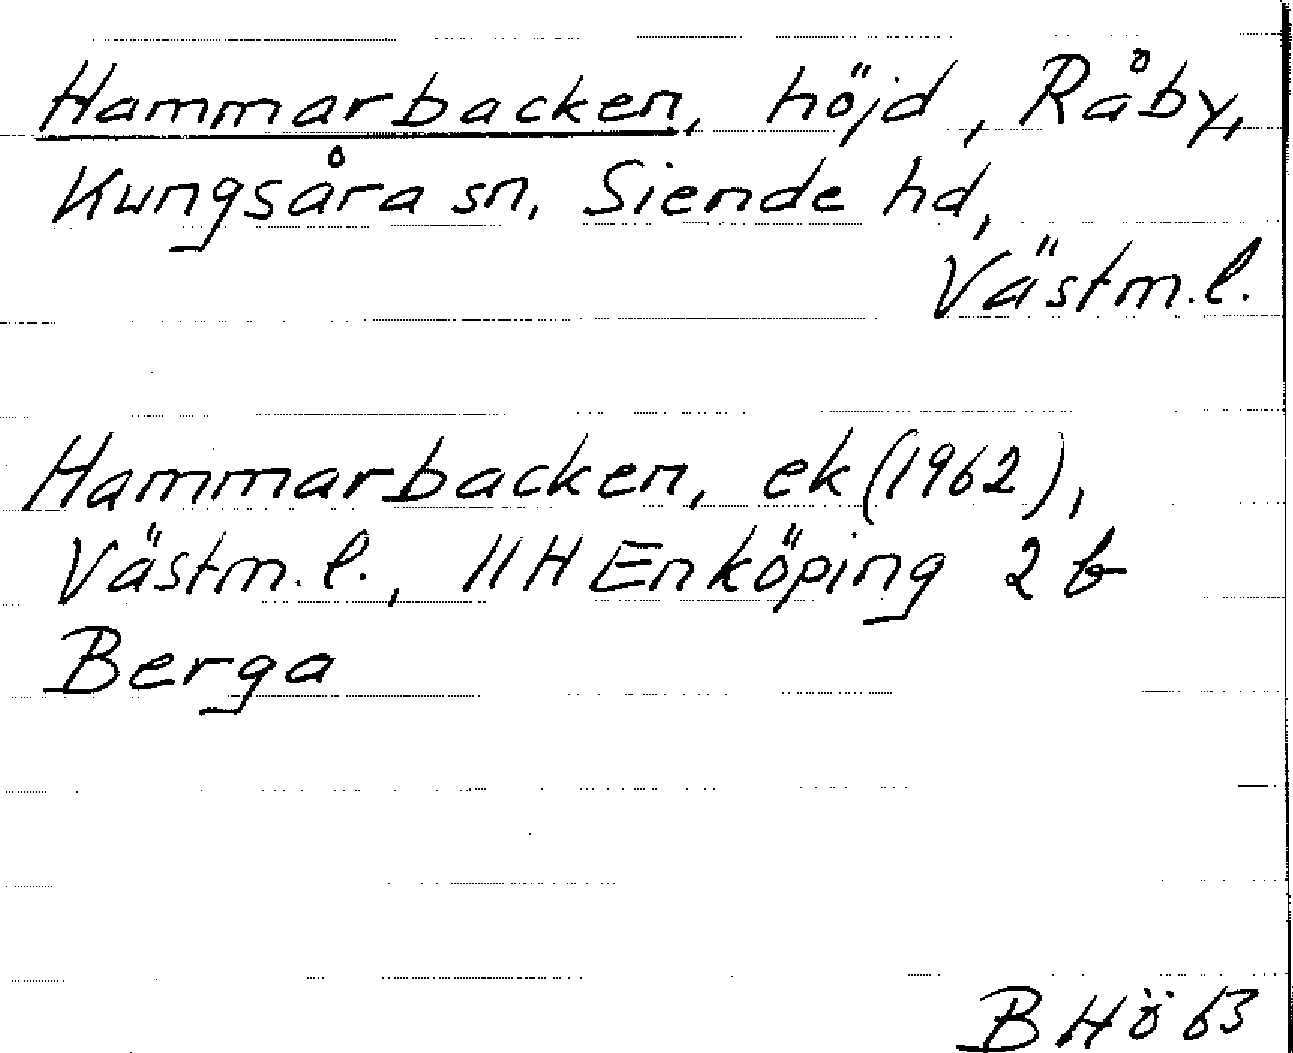 Hammarbacken, höjd, Råby,
Kungsåra sn, Siende hd,
Västm.l.
Hammarbacken, ek (1962),
Västm.l., 11H Enköping 2 b
Berga
B Hö 63